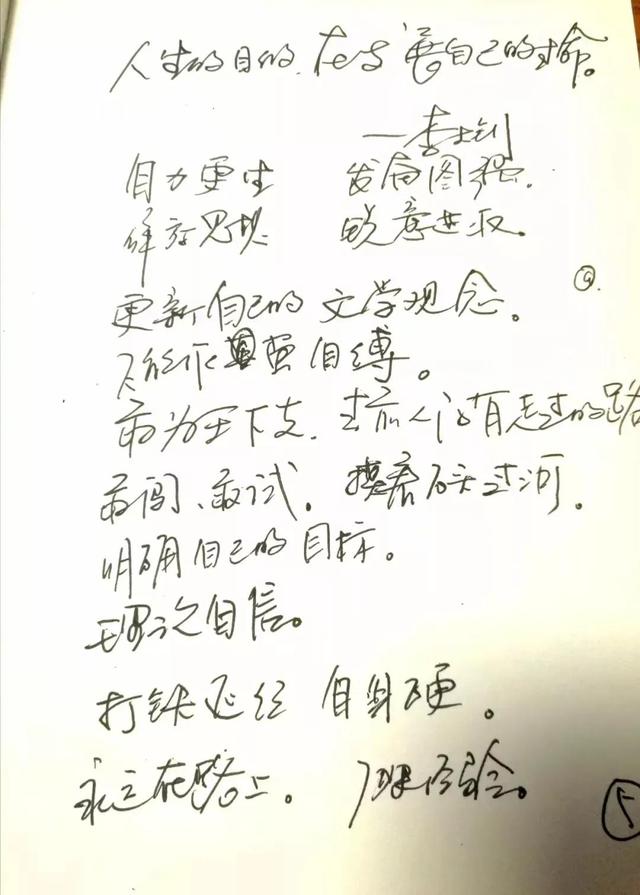 人生的目的,在发展自己的生命。
——李大钊
自力更生 发奋图强.
解放思想 锐意进取。
更新自己的文学观念。
不能作茧自缚。
敢为天下先.走前人没有走过的路
敢闯、敢试.摸着石头过河.
明确自己的目标。
理论自信。
打铁还须自身硬。
永远在路上。
5